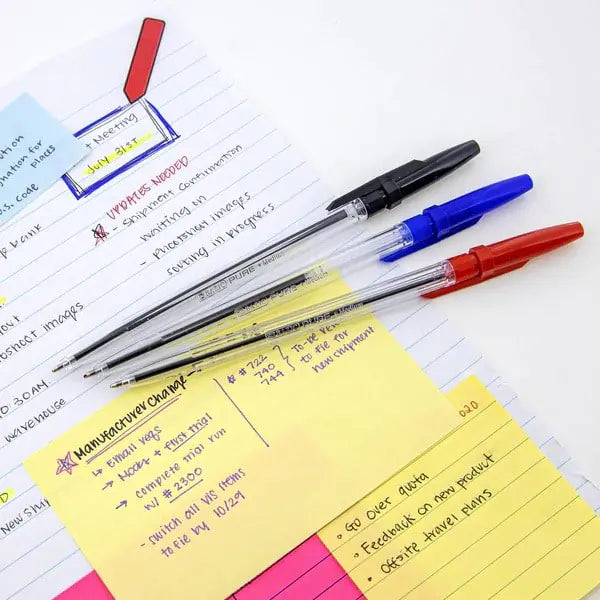 ution
ignation for
places
U.S. code
Meeting
July 31st
UPDATES NEEDED
- Shipment confirmation
waiting on
- Photoshoot images
sorting in progress
bank
hoot
toshoot images
10:30 AM
warehouse
New Ship
PURE • Medium
PURE • Medium
Medium
Manufacturer Change -
↳ Email reqs
→ Mocks + first trial
→ complete trial run
w/ # 2300
- switch all vis items
to file by 10/29
# 722
740
744
To-be
to file for
new shipment
020
• Go over quota
• Feedback on new product
• Offsite travel plans